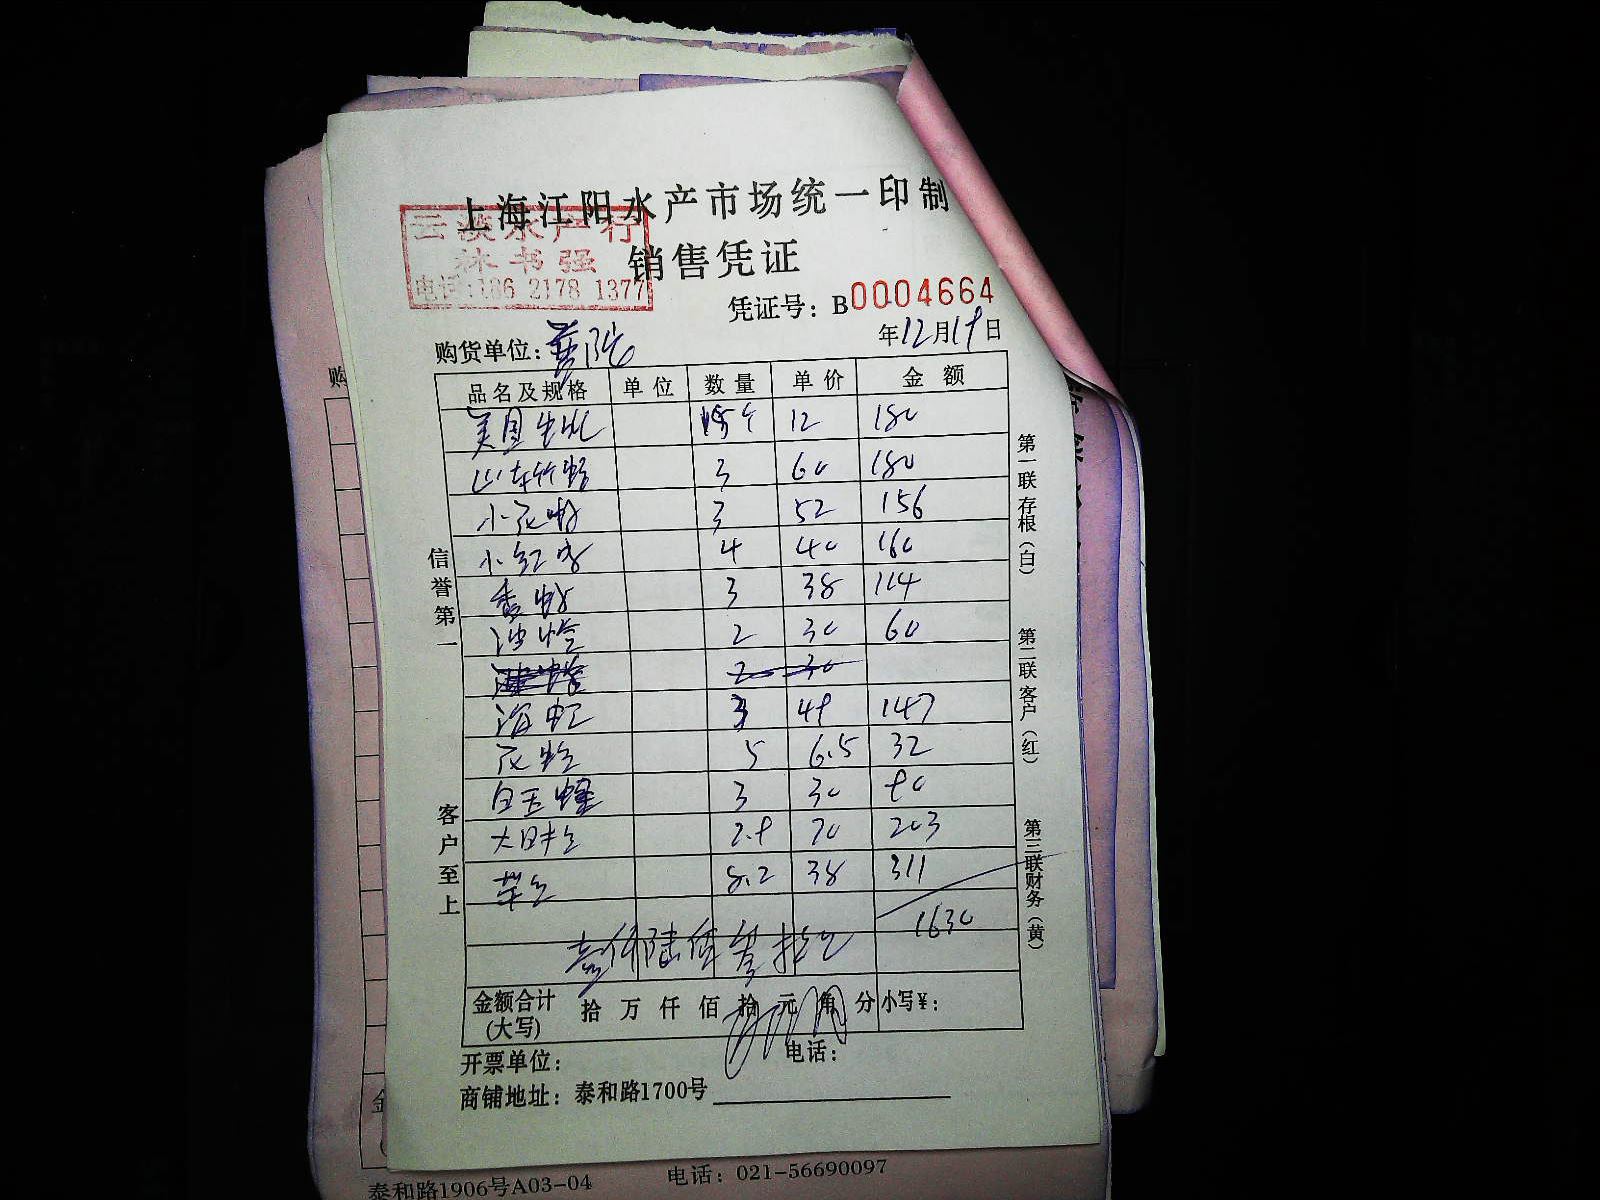 上海江阳水产市场统一印制
云淡水产行
林书强
电话:186 2178 1377
销售凭证
凭证号: B0004664
年12月19日
购货单位:
品名及规格 单位 数量 单价 金额
美国生蚝 15个 12 180
山东竹蛏 3 60 180
小花螺 3 52 156
小红 4 40 160
香螺 3 38 114
油蛤 2 30 60
2 30
海虹 3 49 147
花蛤 5 6.5 32
白玉蛏 3 30 90
2.9 70 203
8.2 38 311
1630
壹仟陆佰叁拾元
金额合计(大写) 拾 万 仟 佰 拾 元 角 分 小写¥:
开票单位: 电话:
商铺地址: 泰和路1700号
信誉第一
客户至上
第一联存根(白)
第二联客户(红)
第三联财务(黄)
购
金
泰和路1906号A03-04 电话: 021-56690097